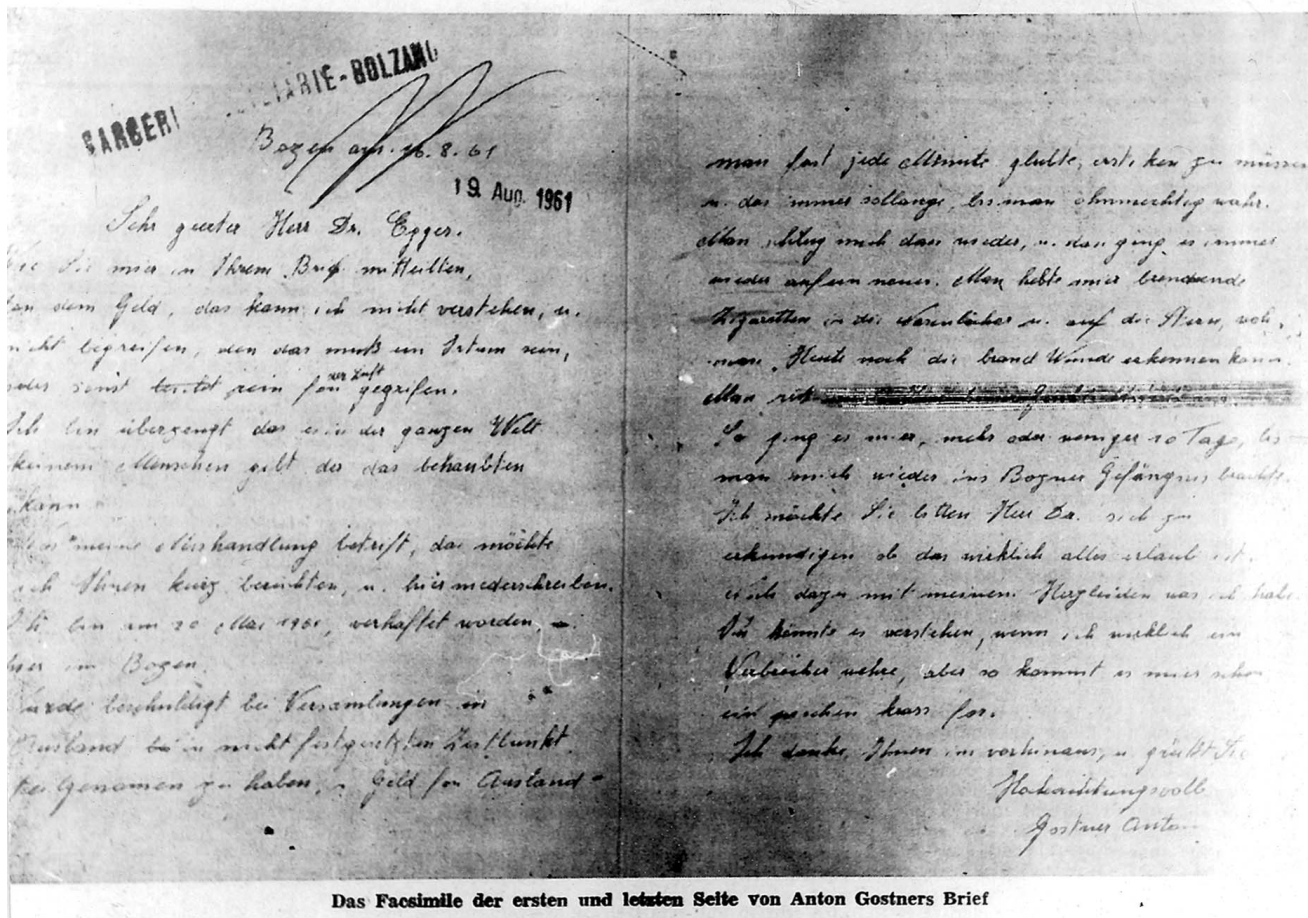 CARCERI GIUDIZIARIE-BOLZANO
Bozen am. 16.8.61
19. Aug. 1961
Sehr geerter Herr Dr. Egger.
Wie Sie mier in Ihrem Brif mitteilten,
dem Geld, das kann ich nicht verstehen, u.
nicht begreifen, den das muß ein Irtum sein,
oder sonst rein fon der Luft gegrifen.
Ich bin überzeugt das es in der ganzen Welt
keinem Menschen gibt der das behaubten
kann
Was meine Mishandlung betrift, da möchte
ich Ihnen kurz berichten, u. hier niederschreiben.
Ich bin am 20 Mai 1961, verhaftet worden,
hier in Bozen,
wurde beschuldigt bei Versamlungen in
Ausland bei in nicht festgesetzten Zeitbunkt
teilgenomen zu haben, u. Geld fon Ausland-
man fast jede Minute glubte, ersticken zu müssen
u. das immer sollange, bis man ohnmechtig wahr.
Man schlug mich dan wieder, u. dan ging es immer
wieder auf ein neues. Man hebte mier brennende
Zigaretten in die Nasenlöcher u. auf die Stirn, woh
man Heute noch die brand Wunde erkennen kann.
Man
So ging es mier, mehr oder weniger 10 Tage, bis
man mich wieder ins Bozner Gefängnis brachte.
Ich möchte Sie bitten Herr Dr. sich zu
erkundigen ob das wirklich alles erlaub ist.
dazu mit meinem Herzleiden was ich habe.
könnte es verstehen, wenn ich wirklich ein
Verbrecher wehre, aber so kommt es mier schon
ein krass for.
Ich danke Ihnen im vorhinaus, u. grüßt Sie
Hochachtungsvoll
Gostner Anton
Das Facsimile der ersten und letzten Seite von Anton Gostners Brief